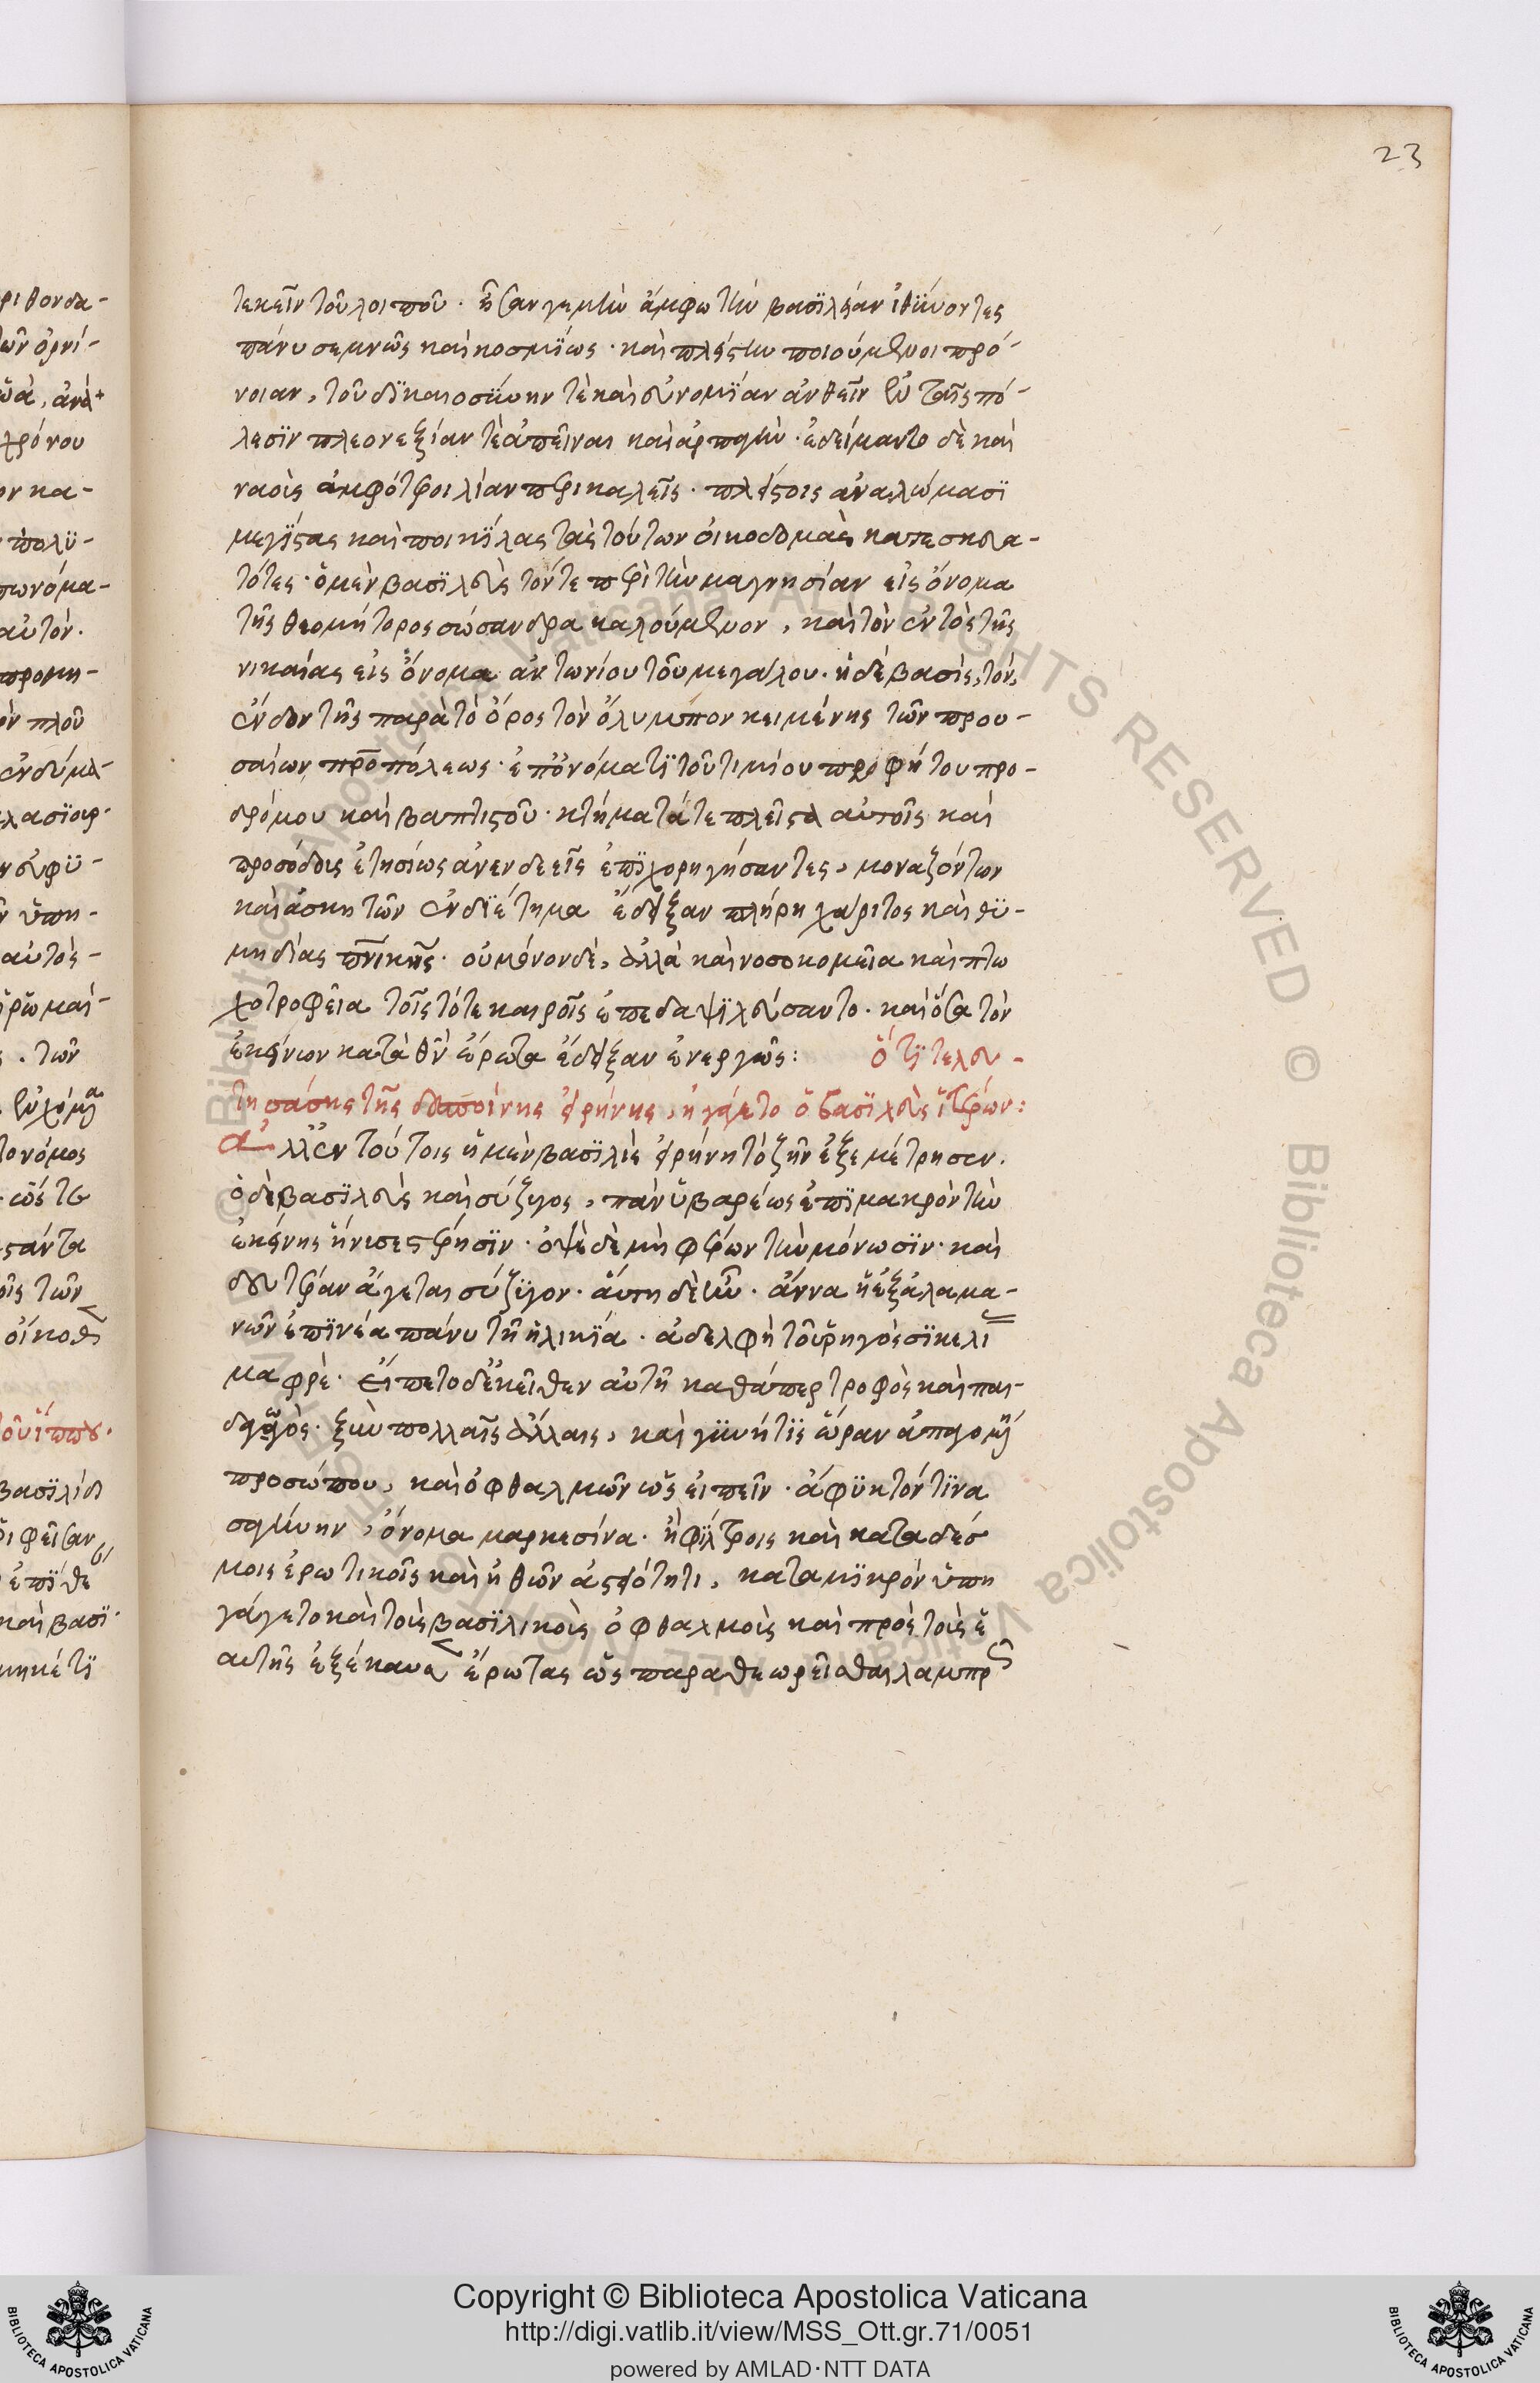 23
τεκεῖν τοῦ λοιποῦ · ἦσαν γεμὴν ἄμφω τὴν βασιλείαν ἰθύνοντες
πάνυ σεμνῶς καὶ κοσμίως · καὶ πλείστην ποιούμενοι πρό-
νοιαν, τοῦ δικαιοσύνην τὲ καὶ εὐνομίαν ἀνθεῖν ἐν ταῖς πό-
λεσιν πλεονεξίαν τὲ ἀπεῖναι καὶ ἁρπαγήν · ἐδείμαντο δὲ καὶ
ναοὺς ἀμφότεροι λίαν περικαλεῖς · πλείστοις ἀναλώμασι
μεγίστας καὶ ποικίλας τὰς τούτων οἰκοδομὰς κατεσκευα-
κότες · ὁ μὲν βασιλεὺς τόν τε περὶ τὴν μαγνησίαν εἰς ὄνομα
τῆς θεομήτορος σώσανδρα καλούμενον, καὶ τὸν ἐντὸς τῆς
νικαίας εἰς ὄνομα ἀντωνίου τοῦ μεγάλου · ἡ δὲ βασιλὶς, τὸν,
ἔνδον τῆς παρὰ τὸ ὄρος τὸν ὄλυμπον κειμένης τῶν πρου-
σαίων πόλεως · ἐπ' ὀνόματι τοῦ τιμίου προφήτου προ-
δρόμου καὶ βαπτιστοῦ · κτήματά τε πλεῖστα αὐτοῖς καὶ
προσόδους ἐτησίως ἀνενδεεῖς ἐπιχορηγήσαντες, μοναζόντων
καὶ ἀσκητῶν ἐνδιέτημα ἔδειξαν πλήρη χάριτος καὶ θυ-
μηδίας πνικῆς · οὐ μόνον δὲ, ἀλλὰ καὶ νοσοκομεῖα καὶ πτω
χοτροφεῖα τοῖς τότε καιροῖς ἐπεδαψιλεύσαντο · καὶ ὅσα τὸν
ἐκείνων κατὰ θν ἔρωτα ἔδειξαν ἐνεργῶς : ὅτι τελευ-
τησάσης τῆς δεσποίνης εἰρήνης, ἠγάγετο ὁ βασιλεὺς ἑτέραν :
ἀλλ' ἐν τούτοις ἡ μὲν βασιλὶς εἰρήνη τὸ ζῆν ἐξεμέτρησεν.
ὁ δὲ βασιλεὺς καὶ σύζυγος, πάνυ βαρέως ἐπὶ μακρὸν τὴν
ἐκείνης ἤνεγκε στέρησιν · ὀψὲ δὲ μὴ φέρων τὴν μόνωσιν · καὶ
δευτέραν ἄγεται σύζυγον · αὕτη δὲ ἦν · ἄννα ἡ ἐξ ἀλαμα-
νῶν ἐπὶ νέα πάνυ τῆ ἡλικία · ἀδελφὴ τοῦ ῥηγὸς σικελι
μαφρέ · εἵπετο δ' ἐκεῖθεν αὐτῆ καθάπερ τροφὸς καὶ παι-
δαγωγὸς · ξὺν πολλαῖς ἄλλαις, καὶ γυνή τις ὥραν
προσώπου, καὶ ὀφθαλμῶν ὡς εἰπεῖν · ἄφυκτόν τινα
σαγήνην, ὄνομα μαρκεσίνα · ἣ φίλτροις καὶ καταδέσ
μοις ἐρωτικοῖς καὶ ἠθῶν ἀστειότητι, κατὰ μικρὸν ὑπη
γάγετο καὶ τοὺς βασιλικοὺς ὀφθαλμοὺς καὶ πρὸς τοὺς ἑ
αυτῆς ἐξέκαυσεν ἔρωτας ὡς παραθεωρεῖσθαι λαμπρῶς
Copyright © Biblioteca Apostolica Vaticana
http://digi.vatlib.it/view/MSS_Ott.gr.71/0051
powered by AMLAD·NTT DATA